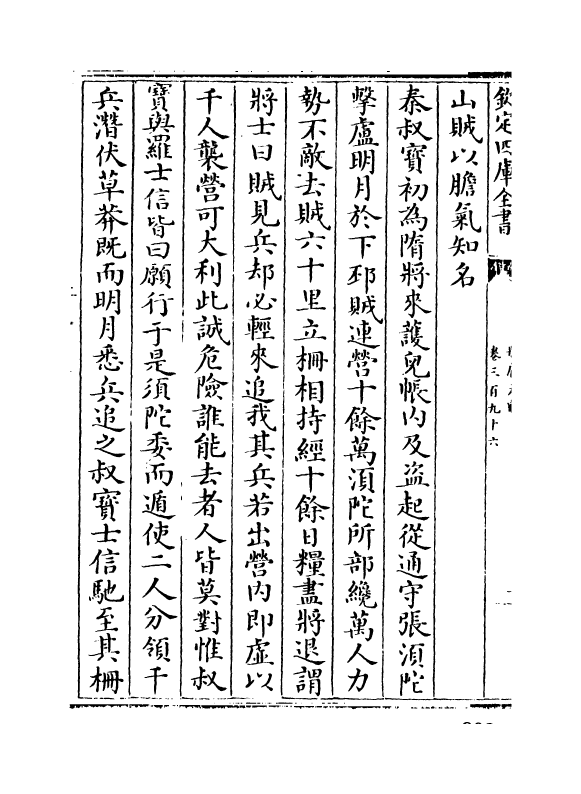 欽定四庫全書
卷三百九十六
山賊以膽氣知名
秦叔寶初為隋將來護兒帳內及盜起從通守張湏陀
擊盧明月於下邳賊連營十餘萬湏陀所部纔萬人力
勢不敵去賊六十里立柵相持經十餘日糧盡將退謂
將士曰賊見兵却必輕來追我其兵若出營內即虛以
千人襲營可大利此誠危險誰能去者人皆莫對惟叔
寶與羅士信皆曰願行于是須陀委而遁使二人分領千
兵潛伏草莽既而明月悉兵追之叔寶士信馳至其柵